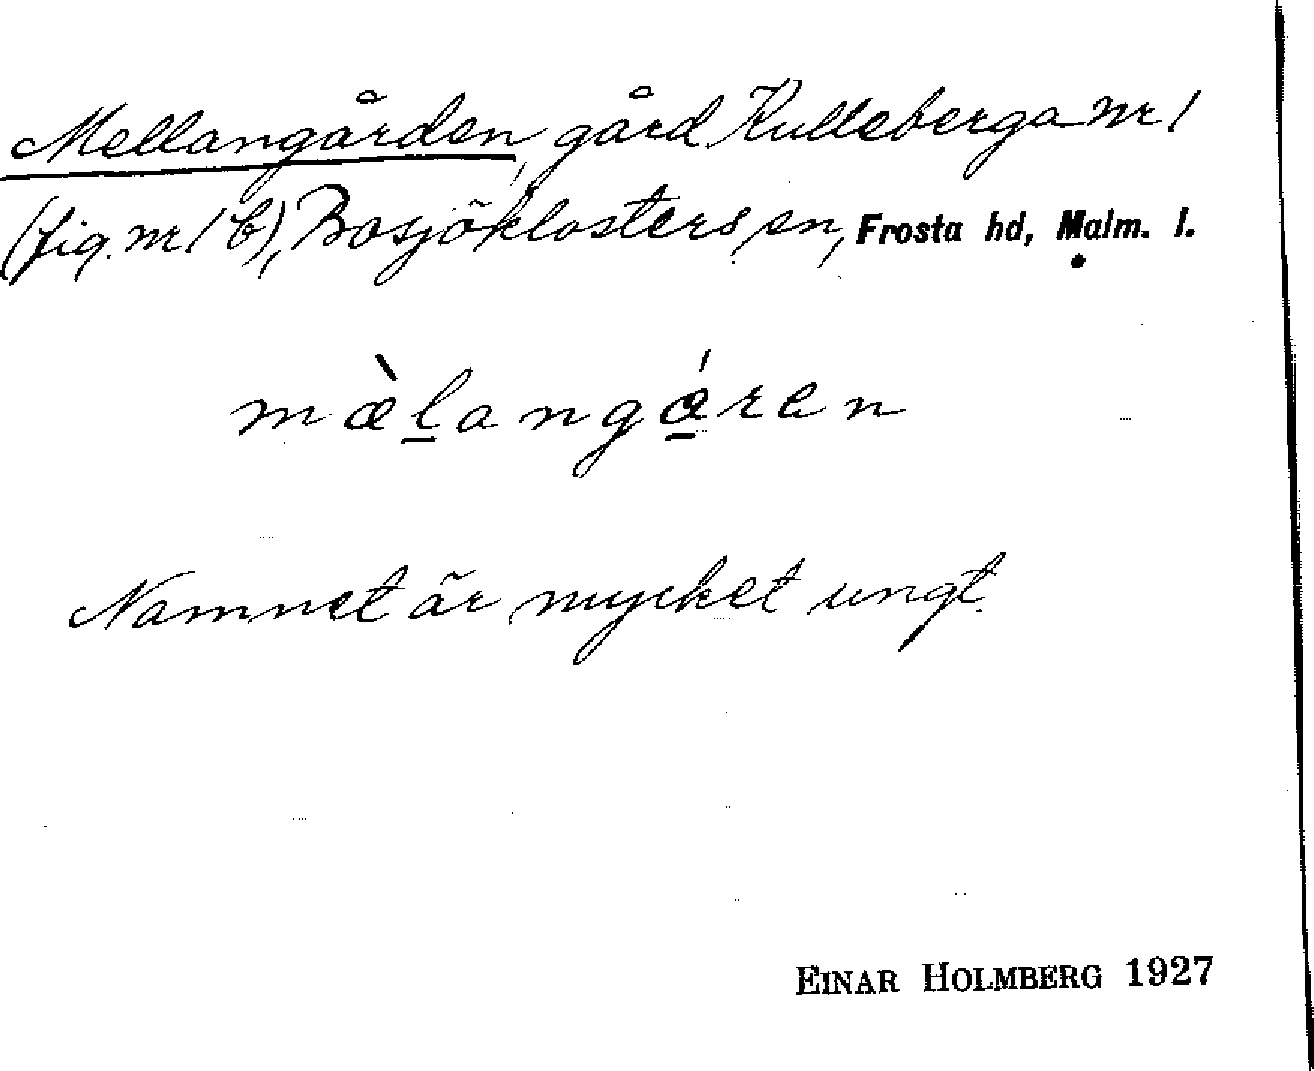 Mellangården, gård Kulleberga nr 1
(fig. nr 1 b), Bosjöklosters sn, Frosta hd, Malm. l.
mæ̀l̲angǻ̲ren
Namnet är mycket ungt.
EINAR HOLMBERG 1927